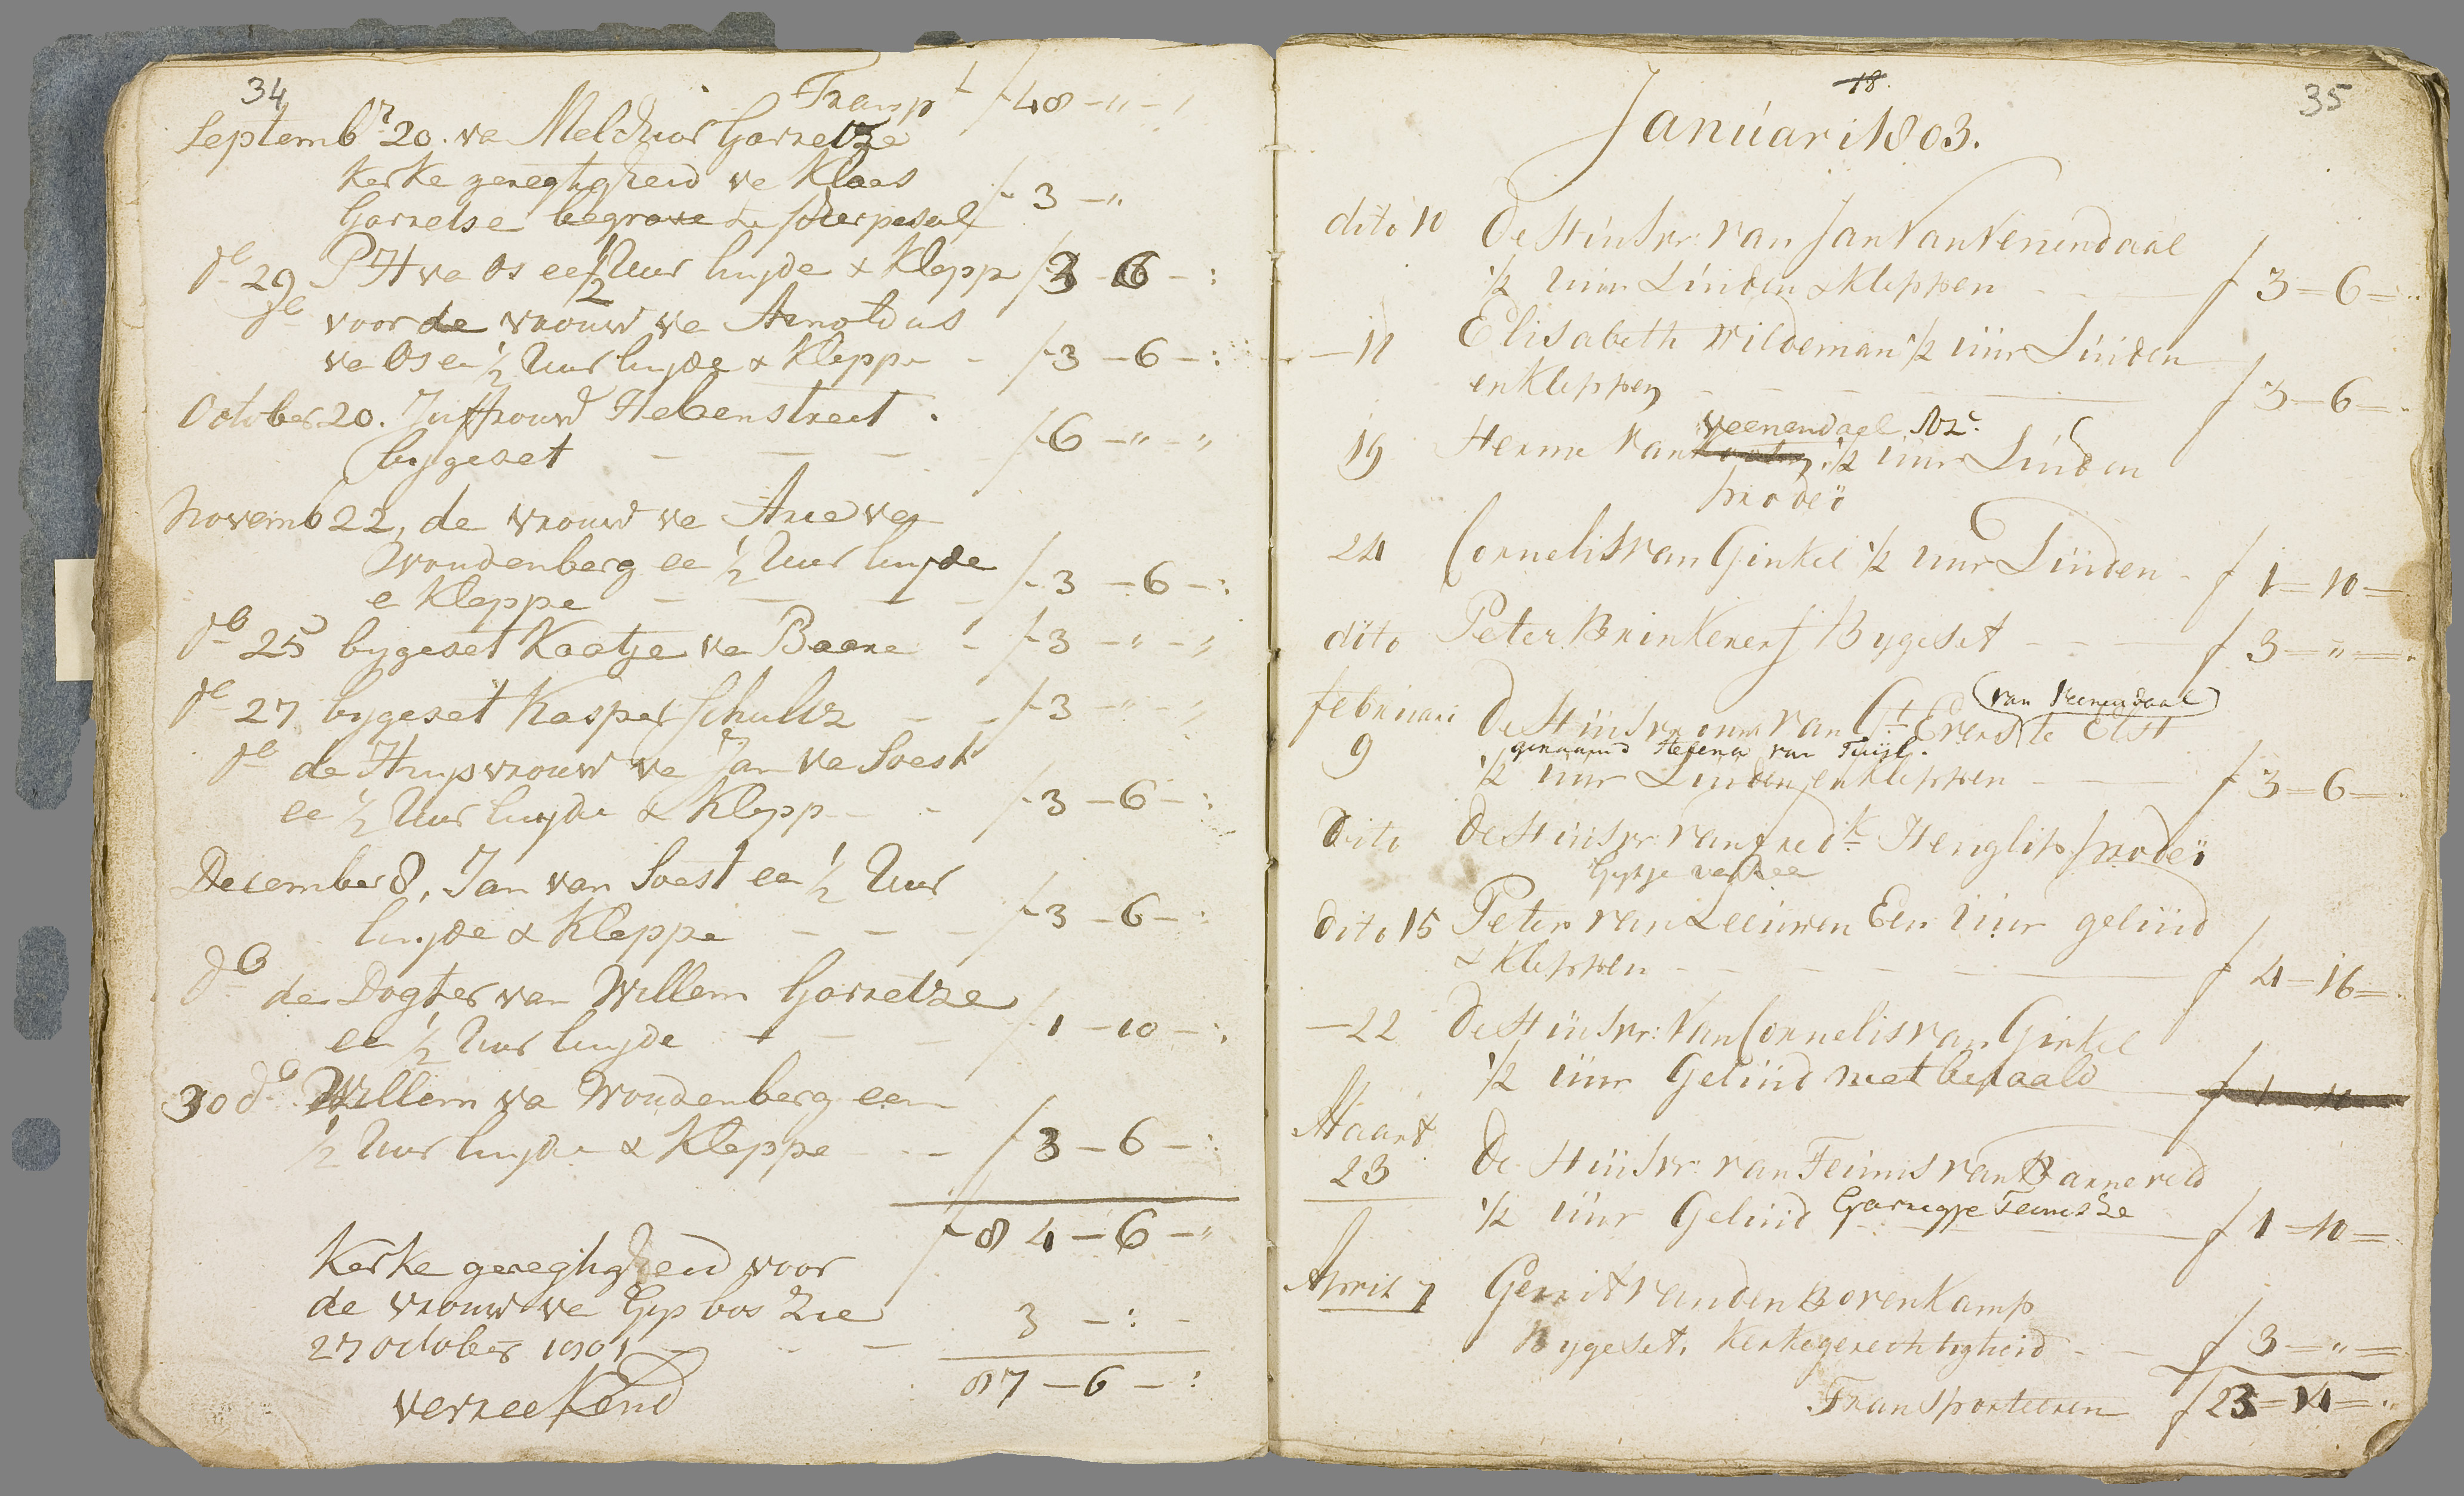 34
Transpt f 48 - " - "
Septembr 20. va Melchior Gorretze
Kerke geregtigheid va Klaas
Gorretse begrave te f 3 - "
do 29 P H va Os ee ½ Uur luyde & Klepp f 3 - 6 - :
do voor de vrouw va Arnoldus
va Os ee ½ Uur luyde & Kleppe - f 3 - 6 - :
October 20. Juffrouw Hebenstreet .
bygeset - - - f 6 - " - "
novemb 22, de vrouw va Arie va
Woudenberg ee ½ Uur luyde
e Kleppe - - - - f 3 - 6 - :
do 25 bygeset Kaatje va Baare - f 3 - " - "
do 27 bygeset Kasper Schultz - - f 3 - " - "
do de Huysvrouw va Jan va Soest
ee ½ Uur luyde & Klepp - - f 3 - 6 - :
December 8, Jan van Soest ee ½ Uur
luyde & Kleppe - - - f 3 - 6 - :
do de Dogter van Willem Gorretze
ee ½ Uur luyde - - - f 1 - 10 - :
30 do Willem va Woudenberg een
½ Uur luyde & Kleppe - - f 3 - 6 - :
f 84 - 6 - "
Kerke geregtigheid voor
de vrouw va Gysbos Zie
27 october 1801 - - - 3 - : -
87 - 6 - :
verreekend
18.
35
Januari 1803.
dito 10 De Huisvr: van Jan Van Venendaal
½ uur Luiden & Kleppen - - f 3 = 6 =
- 11 Elisabeth Wildeman ½ uur Luiden
en Kleppen - - - f 3 - 6 -
Veenendaal Nz.
19 Herme van ½ uur Luiden
prodeï
24 Cornelis van Ginkel ½ uur Luiden - f 1 = 10 =
dito Peter Brinkenerf Bygeset - - - f 3 = " =
(van Veenendaal)
februari De Huisvrouw van Ct Everd te Elst
genaamd Helena van Tuijl.
9 ½ uur Luiden en kleppen - - f 3 = 6 =
Dito De Huisvr: van fredk Henglip prodeï
Gijsje verhee
dito 15 Peter van Leeuwen Een Uur geluid
& Kleppen - - - - f 4 - 16 =
- 22 De Huisvr: van Cornelis van Ginkel
½ uur Geluid niet betaald f 1 10
Maart
23 De Huisvr: van Teunis van Barneveld
½ uur Geluid Garregje Teunisse f 1 - 10 =
April 7 Gerrit van den Bovenkamp
Bygeset, Kerkegerechtigheid - - f 3 = " =
Transporteeren f 23 = 14 = "